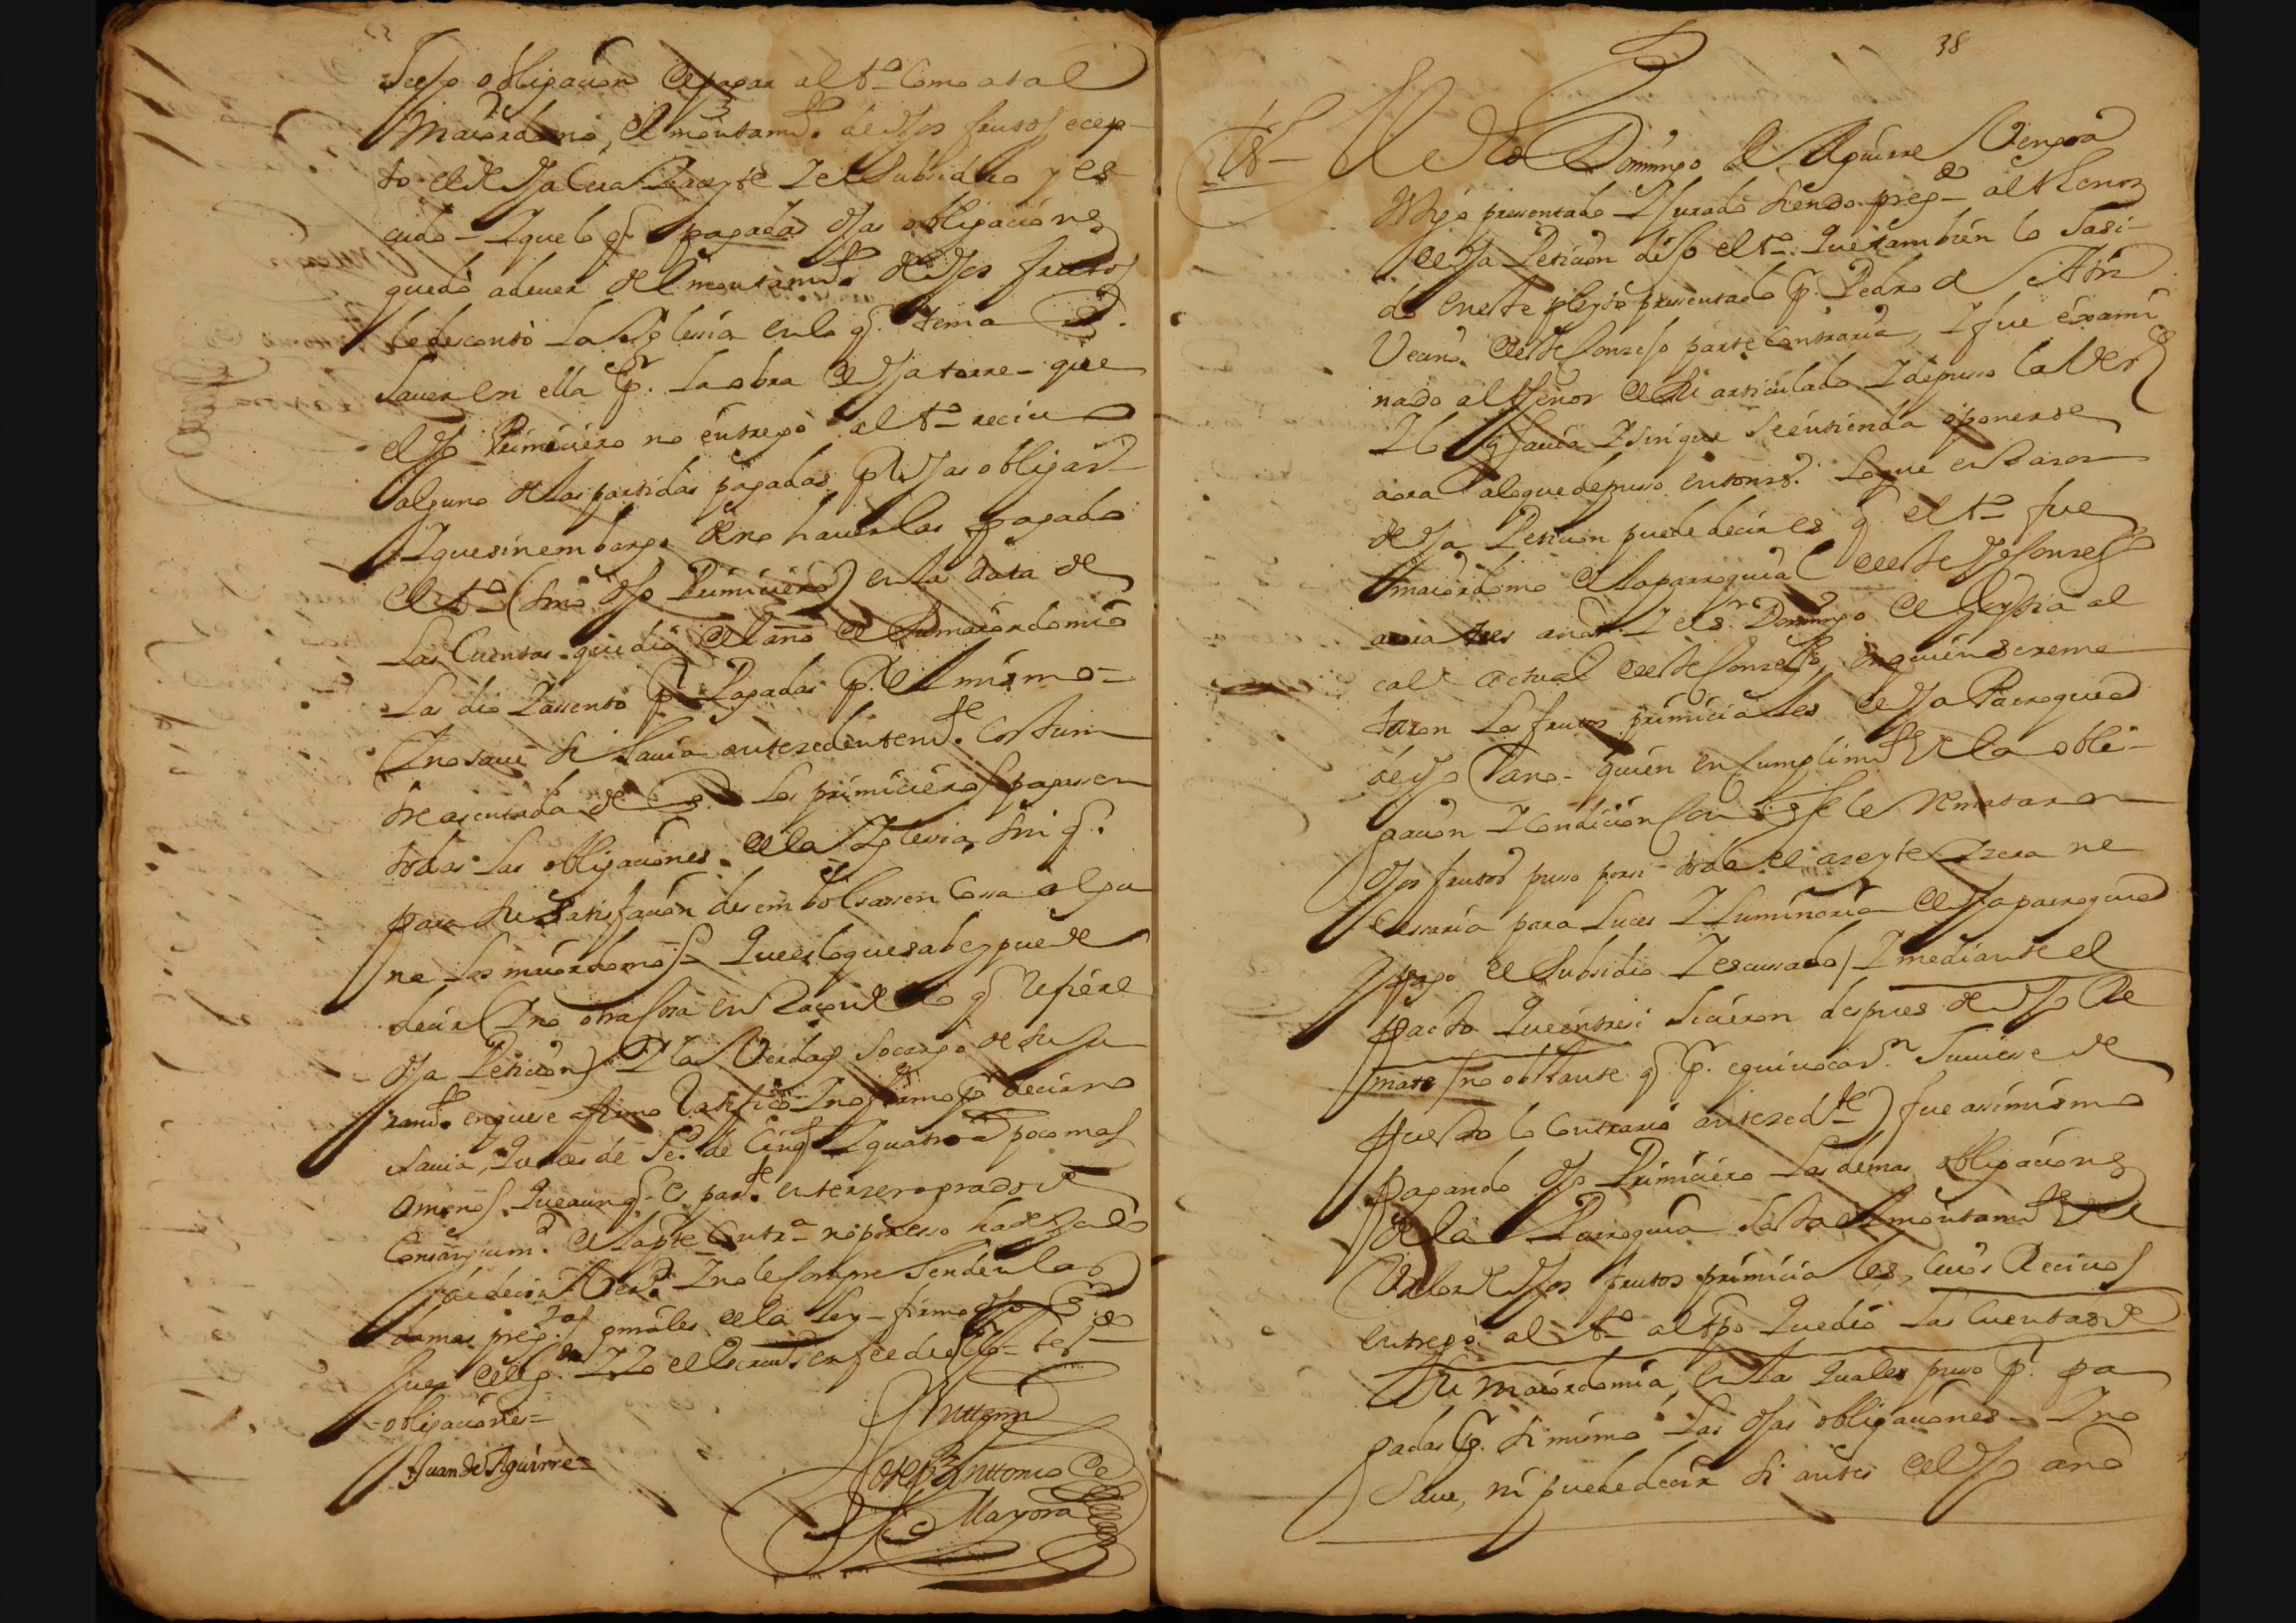 obligacion de pagar al tº como a tal
Maiordomo, el montamtº de dhos frutos ecep-
to el de dha Cera Y aceyte Y el Subsidio y es-
cusado - Y que lo q. pagadas dhas obligaciones
quedo a dever del montamtº de dhos frutos
le desconto la Yglesia en lo q. tenia
haver en ella pr. la obra de dha torre - que
el dho Primiciero no entregò al tº recivo
alguno de las partidas pagadas pr. dhas obligas
Y que sin embargo de no haverlas pagado
el tº (sino dho Primiciero) en la data de
las Cuentas que diò del año de su maiordomia
las dio Y assento pr. Pagadas pr. el mismo =
Y no save si havia antezedentemte. costum
bre asentada de q. los primicieros pagassen
todas las obligaciones de la Yglesia, sin q.
para su satisfacion desembolsassen cossa algu
na los maiordomos - Que es lo que sabe y puede
decir (Y no otra cosa en razon de lo q. refiere
dha Peticion) Y la Verdad so cargo de su ju
ramtº en que se afirmo Ratificò Y no firmo pr. decir no
savia, Que es de hed. de cinqta Y quatro aº poco mas
o menos, Que aunq. es parte. en terzero grado de
Consanguinid. de la pte Contrª no por esso ha dejado
de decir Verd. Y no le comprehenden las
demas pregtas generales de la Ley - firmò dho Sr
Juez Y Yo el Escrivº en fee de ello = tesdº
= obligaciones =
Juan de Aguirre =
Ante mi
Joseph Anttonio de
Mayora
38
tº El dho Domingo de Aguirre Vengoa
testigo presentado Y Jurado siendo pregdo al thenor
de dha Peticion dijo el tº Que tambien lo ha si-
do en este pleyto presentado pr. Pedro de
Vecino de este Conzejo parte Contraria, Y fue exami
nado al thenor de su articulado Y depuso la Verd
Y lo q. savia Y sin que se entienda oponerse
aora a lo que depuso entonzs. Lo que en razon
de dha Peticion puede decir es q. el tº fue
maiordomo de la parroquia de este dho Conzejo
aora tres años Y el Sr. Domingo de al
calde actual de este Conzejo, en quien se rema
taron los frutos primiciales de dha Parroquia
de dho año - quien en cumplimtº de la obli-
gacion Y condicion con q. se le remataron
dhos frutos puso por si todo el azeyte Y zera ne
cessaria para Luces Y Luminaria de dha parroquia
Y pago el Subsidio Y escusado, Y mediante el
pacto Que entresi hicieron despues de dho Re
mate (no obstante q. pr. equivocacon. huviese de
puesto lo Contrario antezedte) fue assimismo
pagando dho Primiciero las demas obligaciones
de la Parroquia hasta el montamtº del
Valor de dhos frutos primiciales, cuios Recivos
entregò al tº al tpo Que diò las Cuentas de
su maiordomia, en las quales puso pr. pa
gadas pr. si mismo las dhas obligaciones - Y no
save, ni puede decir si antes del dho año